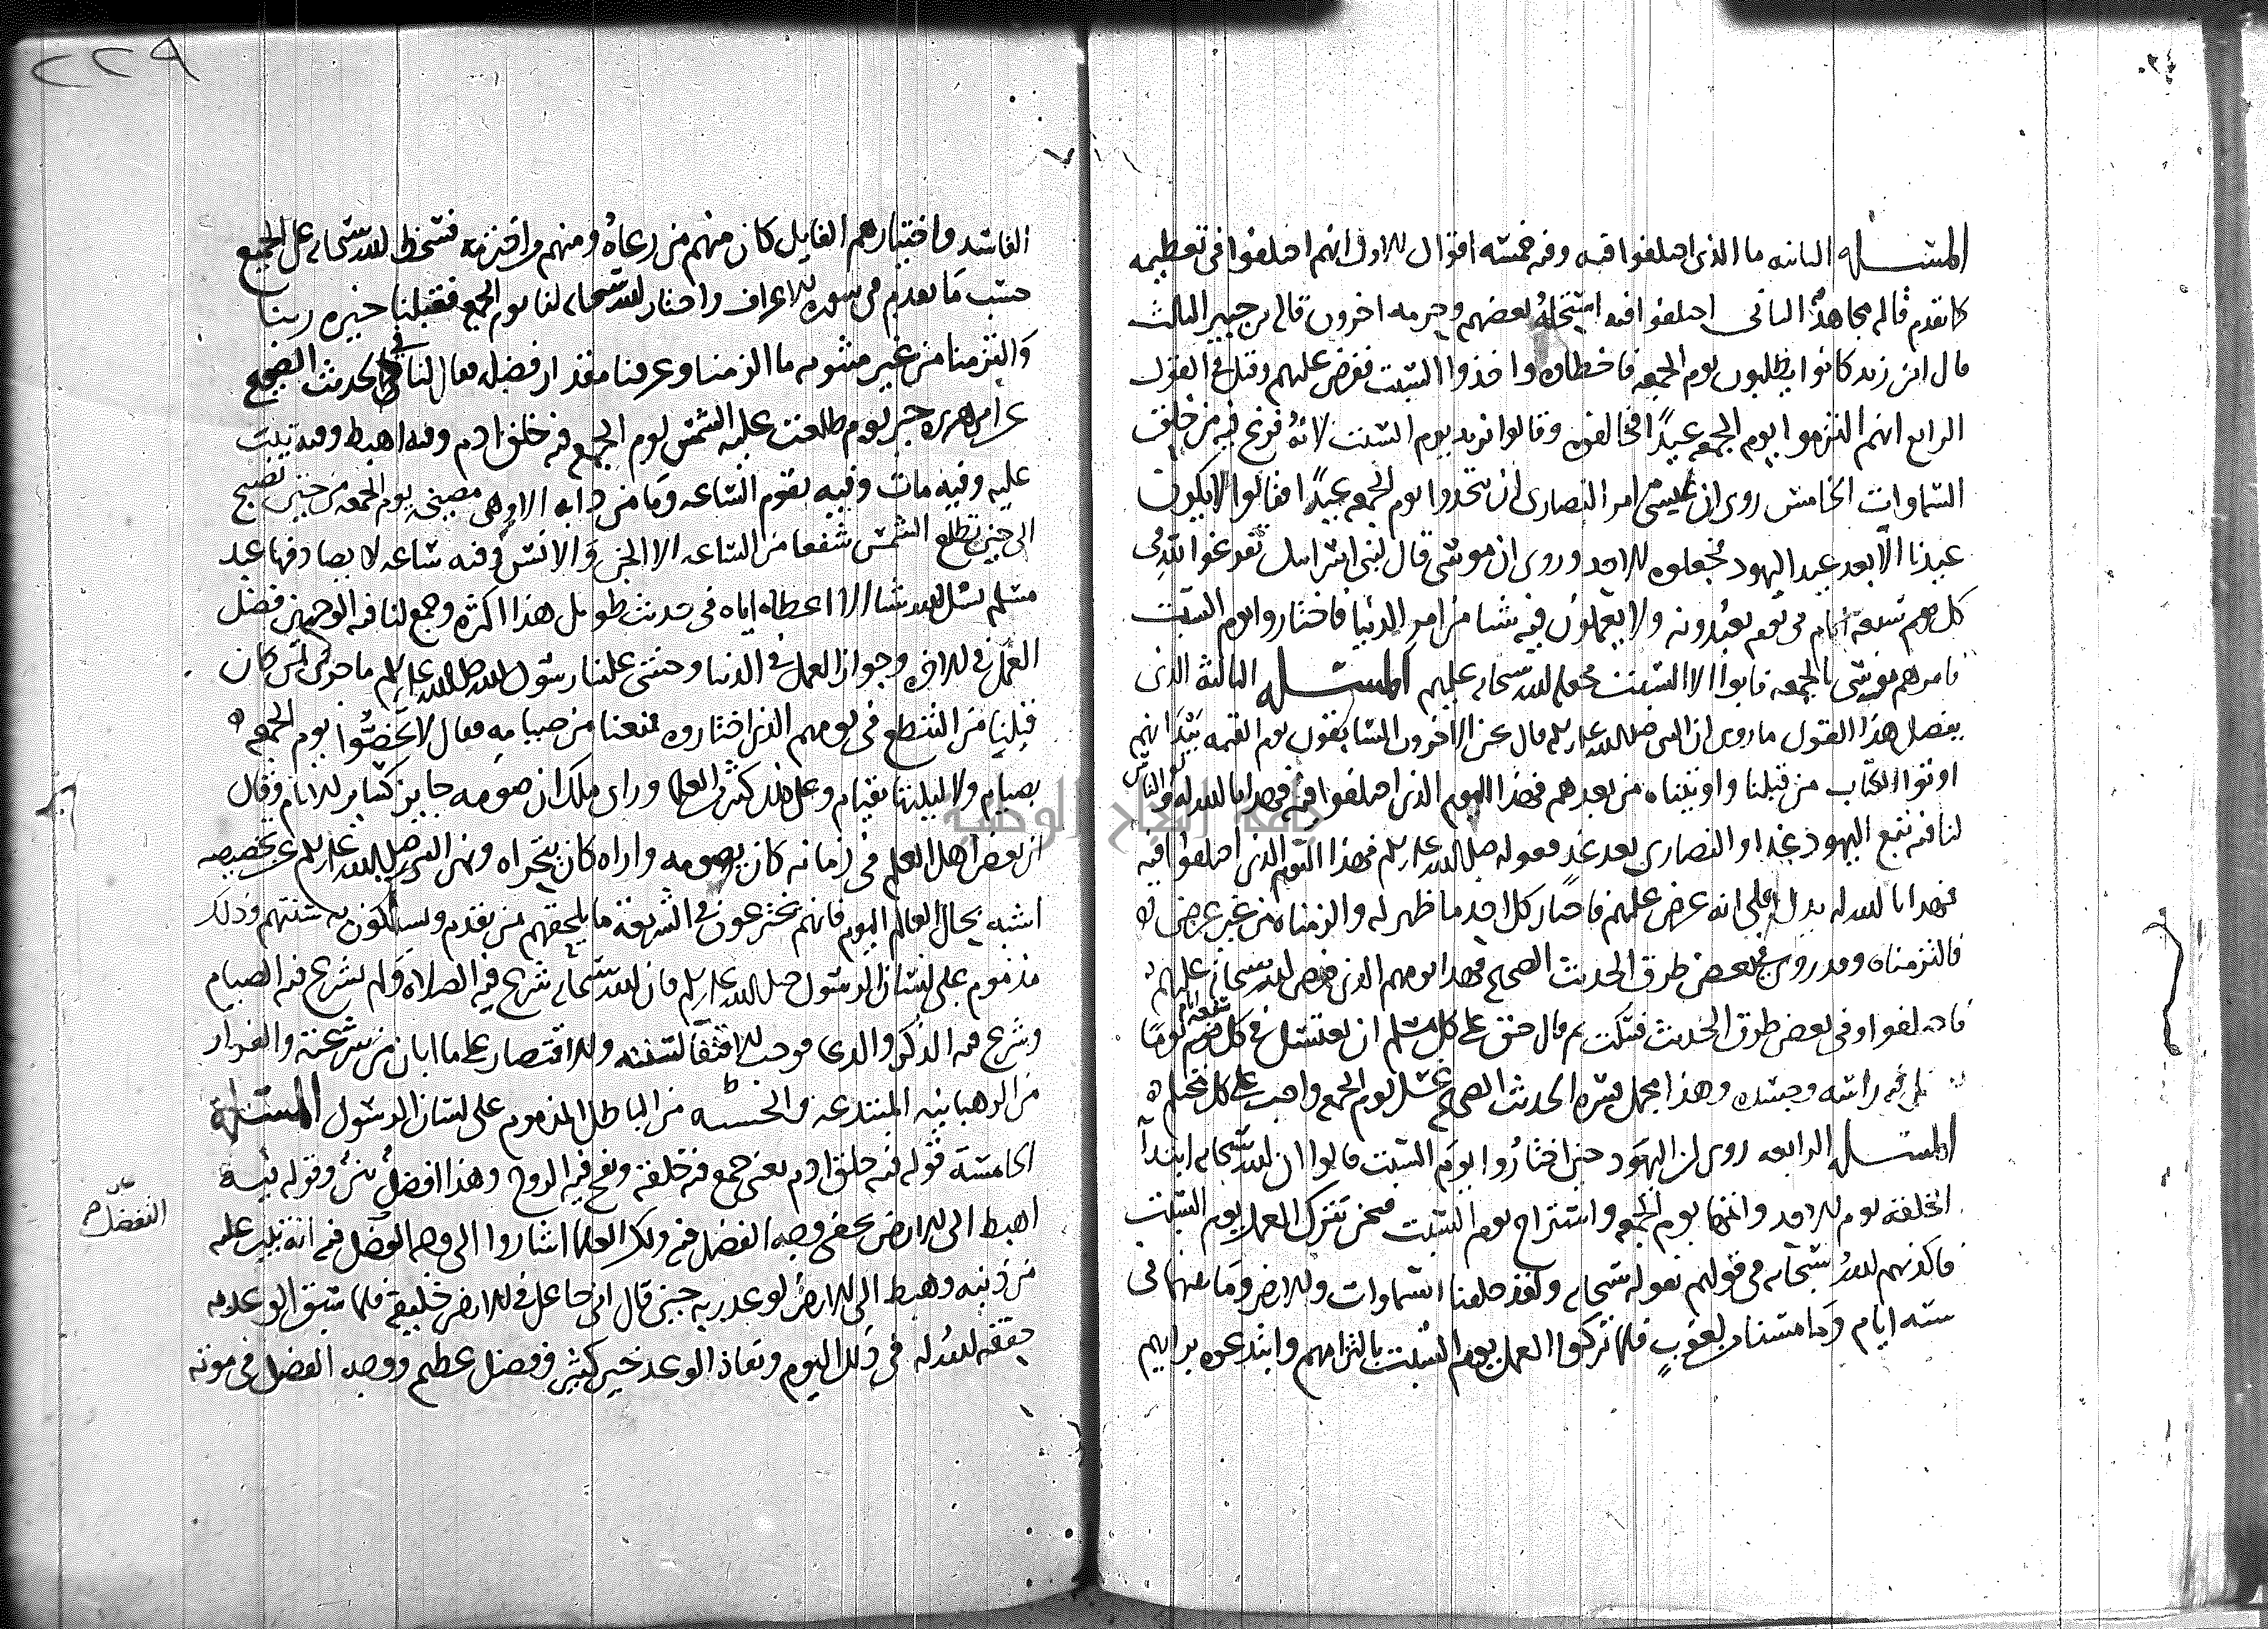 المسئلة الثانية ما الذي اختلفوا فيه وفيه خمسة اقوال الاول انهم اختلفوا في تعظيمه
كما تقدم قاله مجاهد الثاني اختلفوا فيه استحله بعضهم وحرمه اخرون قاله بن جبير الثالث
قال ابن زيد كانوا يطلبون يوم الجمعة فاخطاوه واخذوا السبت ففرض عليهم وقيل في القول
الرابع انهم الزموا يوم الجمعة عيدًا فخالفوه وقالوا نريد يوم السبت لانه فرغ فيه من خلق
السماوات الخامس روي ان عيسى امر النصارى ان يتخذوا يوم الجمعة عيدًا فقالوا لا يكون
عيدنا الا بعد عيد اليهود فجعلوه الاحد وروي ان موسى قال لبني اسرايل تفرغوا لله في
كل سبعة ايام في يوم تعبدونه ولا تعملون فيه شيا من امر الدنيا فاختاروا يوم السبت
فامرهم موسى بالجمعة فابوا الا السبت فجعله الله سبحانه عليهم المسئلة الثالثة الذي
يفصل هذا القول ما روي ان النبي صلى الله عليه وسلم قال نحن الاخرون السابقون يوم القيمة بيد انهم
اوتوا الكتاب من قبلنا واوتيناه من بعدهم فهذا اليوم الذي اختلفوا فيه فهدانا الله له فالناس
لنا فيه تبع اليهود غدا والنصارى بعد غد فقوله صلى الله عليه وسلم فهذا اليوم الذي اختلفوا فيه
فهدانا الله له يدل على انه عرض عليهم فاختار كل احد ما ظهر له والزمناه من غير عرض
فالتزمناه وقد روي في بعض طرق الحديث الصحيح فهذا يومهم الذي فرض الله سبحانه عليهم
فاختلفوا وفي بعض طرق الحديث فسكت ثم قال حق على كل مسلم ان يغتسل في كل سبعة ايام يومًا
يغسل فيه راسه وجسده وهذا مجمل يفسره الحديث الصحيح غسل يوم الجمعة واجب على كل محتلم
المسئلة الرابعة روي ان اليهود حين اختاروا يوم السبت قالوا ان الله سبحانه ابتدا
الخلقة يوم الاحد واتمها يوم الجمعة واستراح يوم السبت فنحن نترك العمل يوم السبت
فاكذبهم الله سبحانه في قولهم بقوله سبحانه ولقد خلقنا السماوات والارض وما بينهما في
ستة ايام وما مسنا من لغوب فلما تركوا العمل يوم السبت بالتزامهم وابتدعوه برايهم
٢٢٩
الفاسد واختيارهم الفايل كان منهم من رعاه ومنهم من اخترمه فسخط الله سبحانه على الجميع
حسب ما تقدم في سورة الاعراف واختار الله سبحانه لنا يوم الجمعة فقبلنا خيرة ربنا
والتزمنا من غير مثنوية ما الزمنا وعرفنا مقدار فضله فقال لنا في الحديث الصحيح
عن ابي هريرة خير يوم طلعت عليه الشمس يوم الجمعة فيه خلق ادم وفيه اهبط وفيه تيب
عليه وفيه مات وفيه تقوم الساعة وما من دابة الا وهي مصيخة يوم الجمعة من حين تصبح
الى حين تطلع الشمس شفقا من الساعة الا الجن والانس وفيه ساعة لا يصادفها عبد
مسلم يسل الله شيا الا اعطاه اياه في حديث طويل هذا اكثره وجمع لنا فيه الوجهين فضل
العمل في الاخرة وجواز العمل في الدنيا وخشي علينا رسول الله صلى الله عليه وسلم ما جرى لمن كان
قبلنا من التنطع في يومهم الذي اختاروه فمنعنا من صيامه فقال لا تخصوا يوم الجمعة
بصيام ولا ليلتها بقيام وعلى هذا كثير من العلما وراى ملك ان صومه جايز كساير الايام وقال
ان بعض اهل العلم في زمانه كان يصومه واراه كان يتحراه ونهى النبي صلى الله عليه وسلم عن تخصيصه
اشبه بحال العالم اليوم فانهم يخترعون في الشريعة ما يلحقهم بمن تقدم ويسلكون به سنتهم وذلك
مذموم على لسان الرسول صلى الله عليه وسلم فان الله سبحانه شرع فيه الصلاة ولم يشرع فيه الصيام
وشرع فيه الذكر والدعا فوجب الاقتفا لسنته والاقتصار على ما ابان من شرعته والفرار
من الرهبانية المبتدعة والخشية من الباطل المذموم على لسان الرسول المسئلة
الخامسة قوله فيه خلق ادم يعني جمع فيه خلقه ونفخ فيه الروح وهذا افضل بين وقوله فيه
اهبط الى الارض يخفى وجه الفضل فيه ولكن العلما اشاروا الى وجه الفضل فيه انه تيب عليه
من ذنبه وهبط الى الارض لوعد ربه حين قال اني جاعل في الارض خليفة فلما سبق الوعد به
حققه الله له في ذلك اليوم ونفاذ الوعد خير كثير وفضل عظيم ووجه الفضل في موته